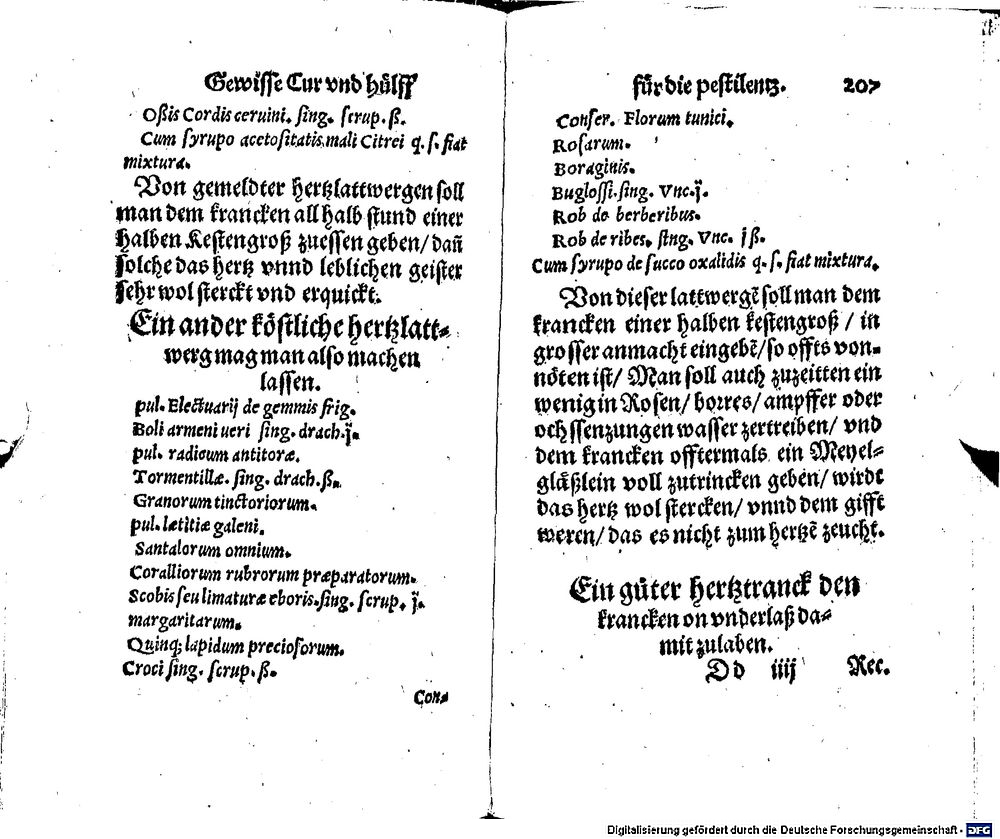 Gewisse Cur vnd hülff
Oßis Cordis ceruini. sing. scrup. ß.
Cum syrupo acetositatis mali Citrei q. s. fiat
mixtura.
Von gemeldter hertzlattwergen soll
man dem krancken all halb stund einer
halben Kestengroß zuessen geben/ dañ
solche das hertz vnnd leblichen geister
sehr wol sterckt vnd erquickt.
Ein ander köstliche hertzlatt-
werg mag man also machen
lassen.
pul. Electuarij de gemmis frig.
Boli armeni ueri sing. drach. ij.
pul. radicum antitoræ.
Tormentillæ. sing. drach. ß.
Granorum tinctoriorum.
pul. lætitiæ galeni.
Santalorum omnium.
Coralliorum rubrorum præparatorum.
Scobis seu limaturæ eboris. sing. scrup. j.
margaritarum.
Quinq; lapidum preciosorum.
Croci sing. scrup. ß.
Con-
für die pestilentz. 207
Conser. Florum tunici.
Rosarum.
Boraginis.
Buglossi. sing. Vnc. ij.
Rob de berberibus.
Rob de ribes. sing. Vnc. j ß.
Cum syrupo de succo oxalidis q. s. fiat mixtura.
Von dieser lattwergē soll man dem
krancken einer halben kestengroß / in
grosser anmacht eingebē/ so offts von-
nöten ist/ Man soll auch zuzeitten ein
wenig in Rosen/ borres/ ampffer oder
ochssenzungen wasser zertreiben/ vnd
dem krancken offtermals ein Meyel-
gläßlein voll zutrincken geben/ wirdt
das hertz wol stercken/ vnnd dem gifft
weren/ das es nicht zum hertzē zeucht.
Ein güter hertztranck den
krancken on vnderlaß da-
mit zulaben.
Dd iiij Rec.
Digitalisierung gefördert durch die Deutsche Forschungsgemeinschaft - DFG